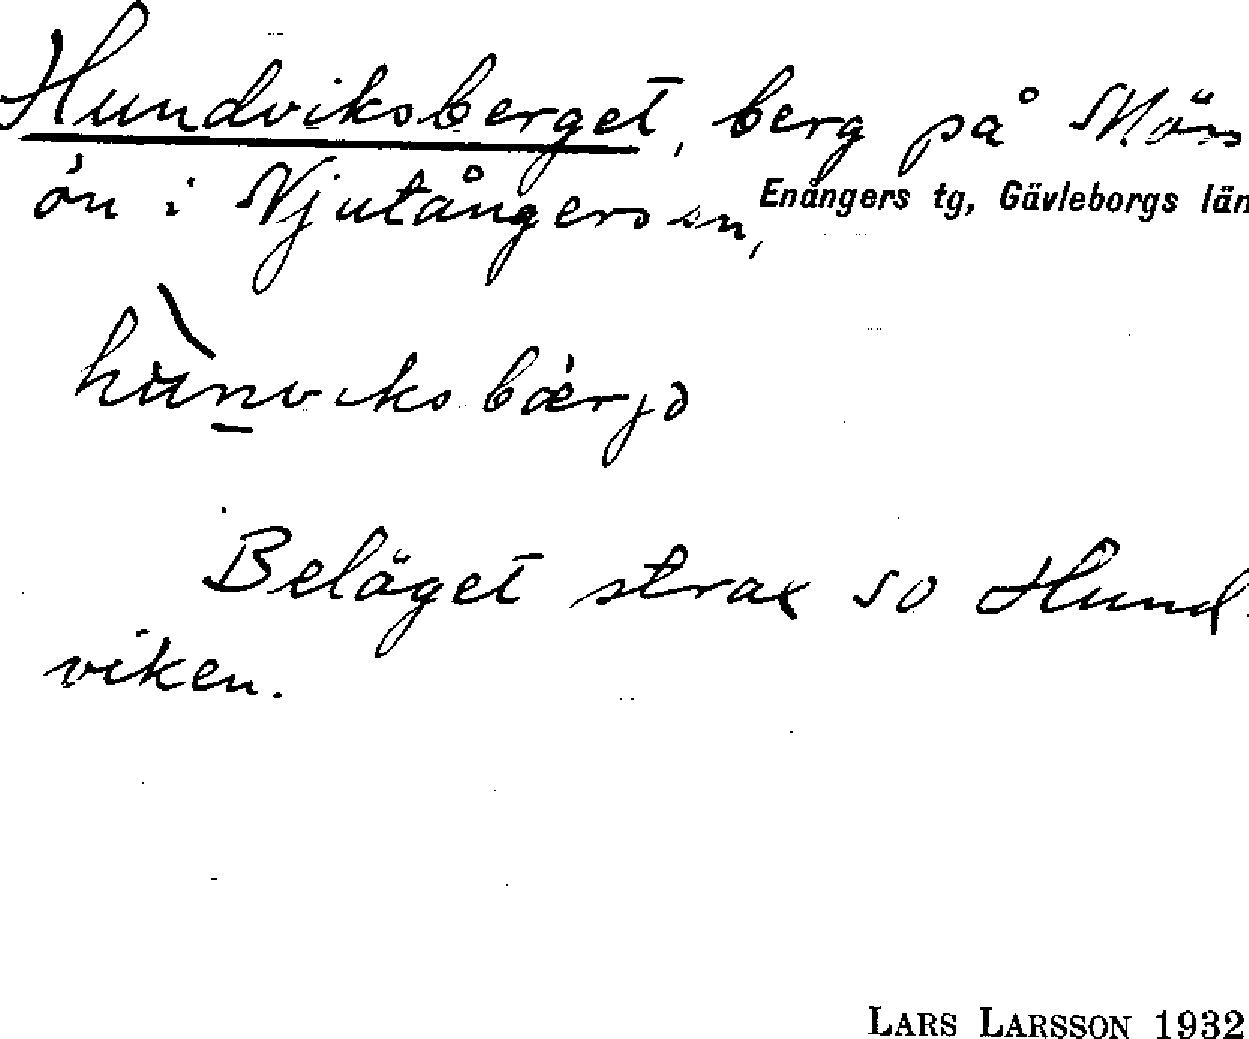 Hundviksberget, berg på Mös
ön i Njutångers sn, Enångers tg, Gävleborgs län
hunviksbærjə
Beläget strax so Hund
viken.
LARS LARSSON 1932